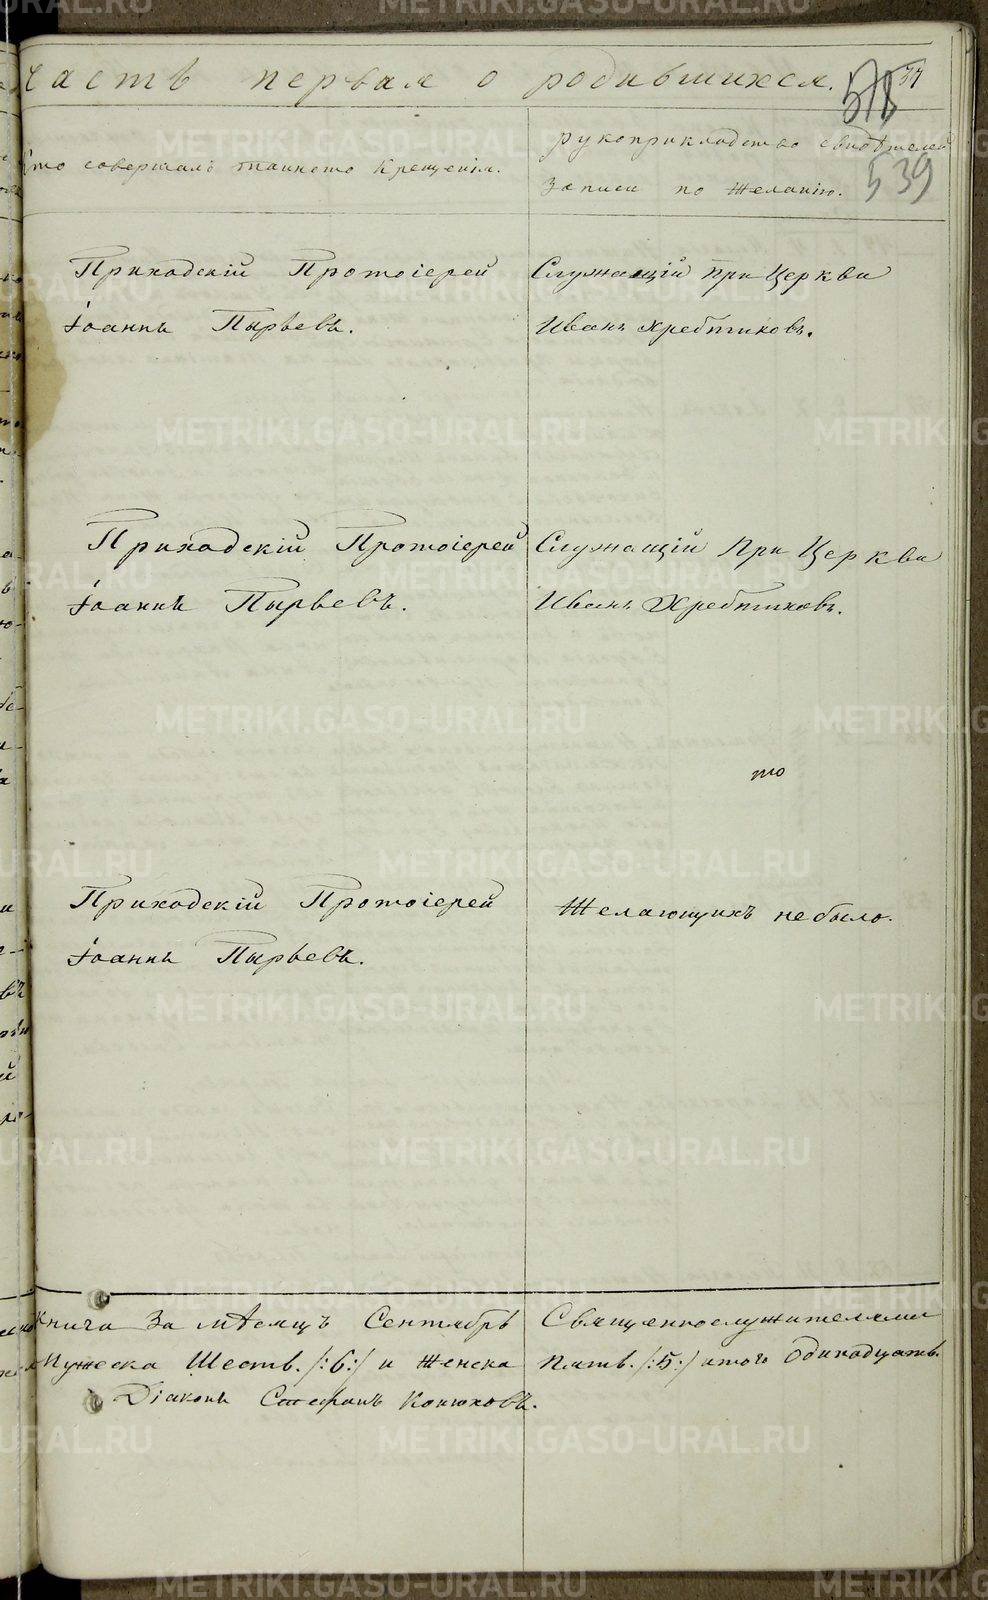 часть первая о родившихся.
578
37
539
Кто совершалъ таинство крещенія.
рукоприкладство свидѣтелей
записи по желанію.
Приходскій Протоіерей
Іоаннъ Пырьевъ.
Служащій при Церкви
Иванъ Хребтиковъ.
Приходскій Протоіерей
Іоаннъ Пырьевъ.
Служащій при Церкви
Иванъ Хребтиковъ.
то
Приходскій Протоіерей
Іоаннъ Пырьевъ.
Желающихъ не было.
книга за мѣсяцъ Сентябрь Священнослужителями
Мужеска Шесть. /:6:/ и Женска пять. /:5:/ итого Одинадцать.
Діаконъ Стефанъ Конюховъ.
METRIKI.GASO-URAL.RU